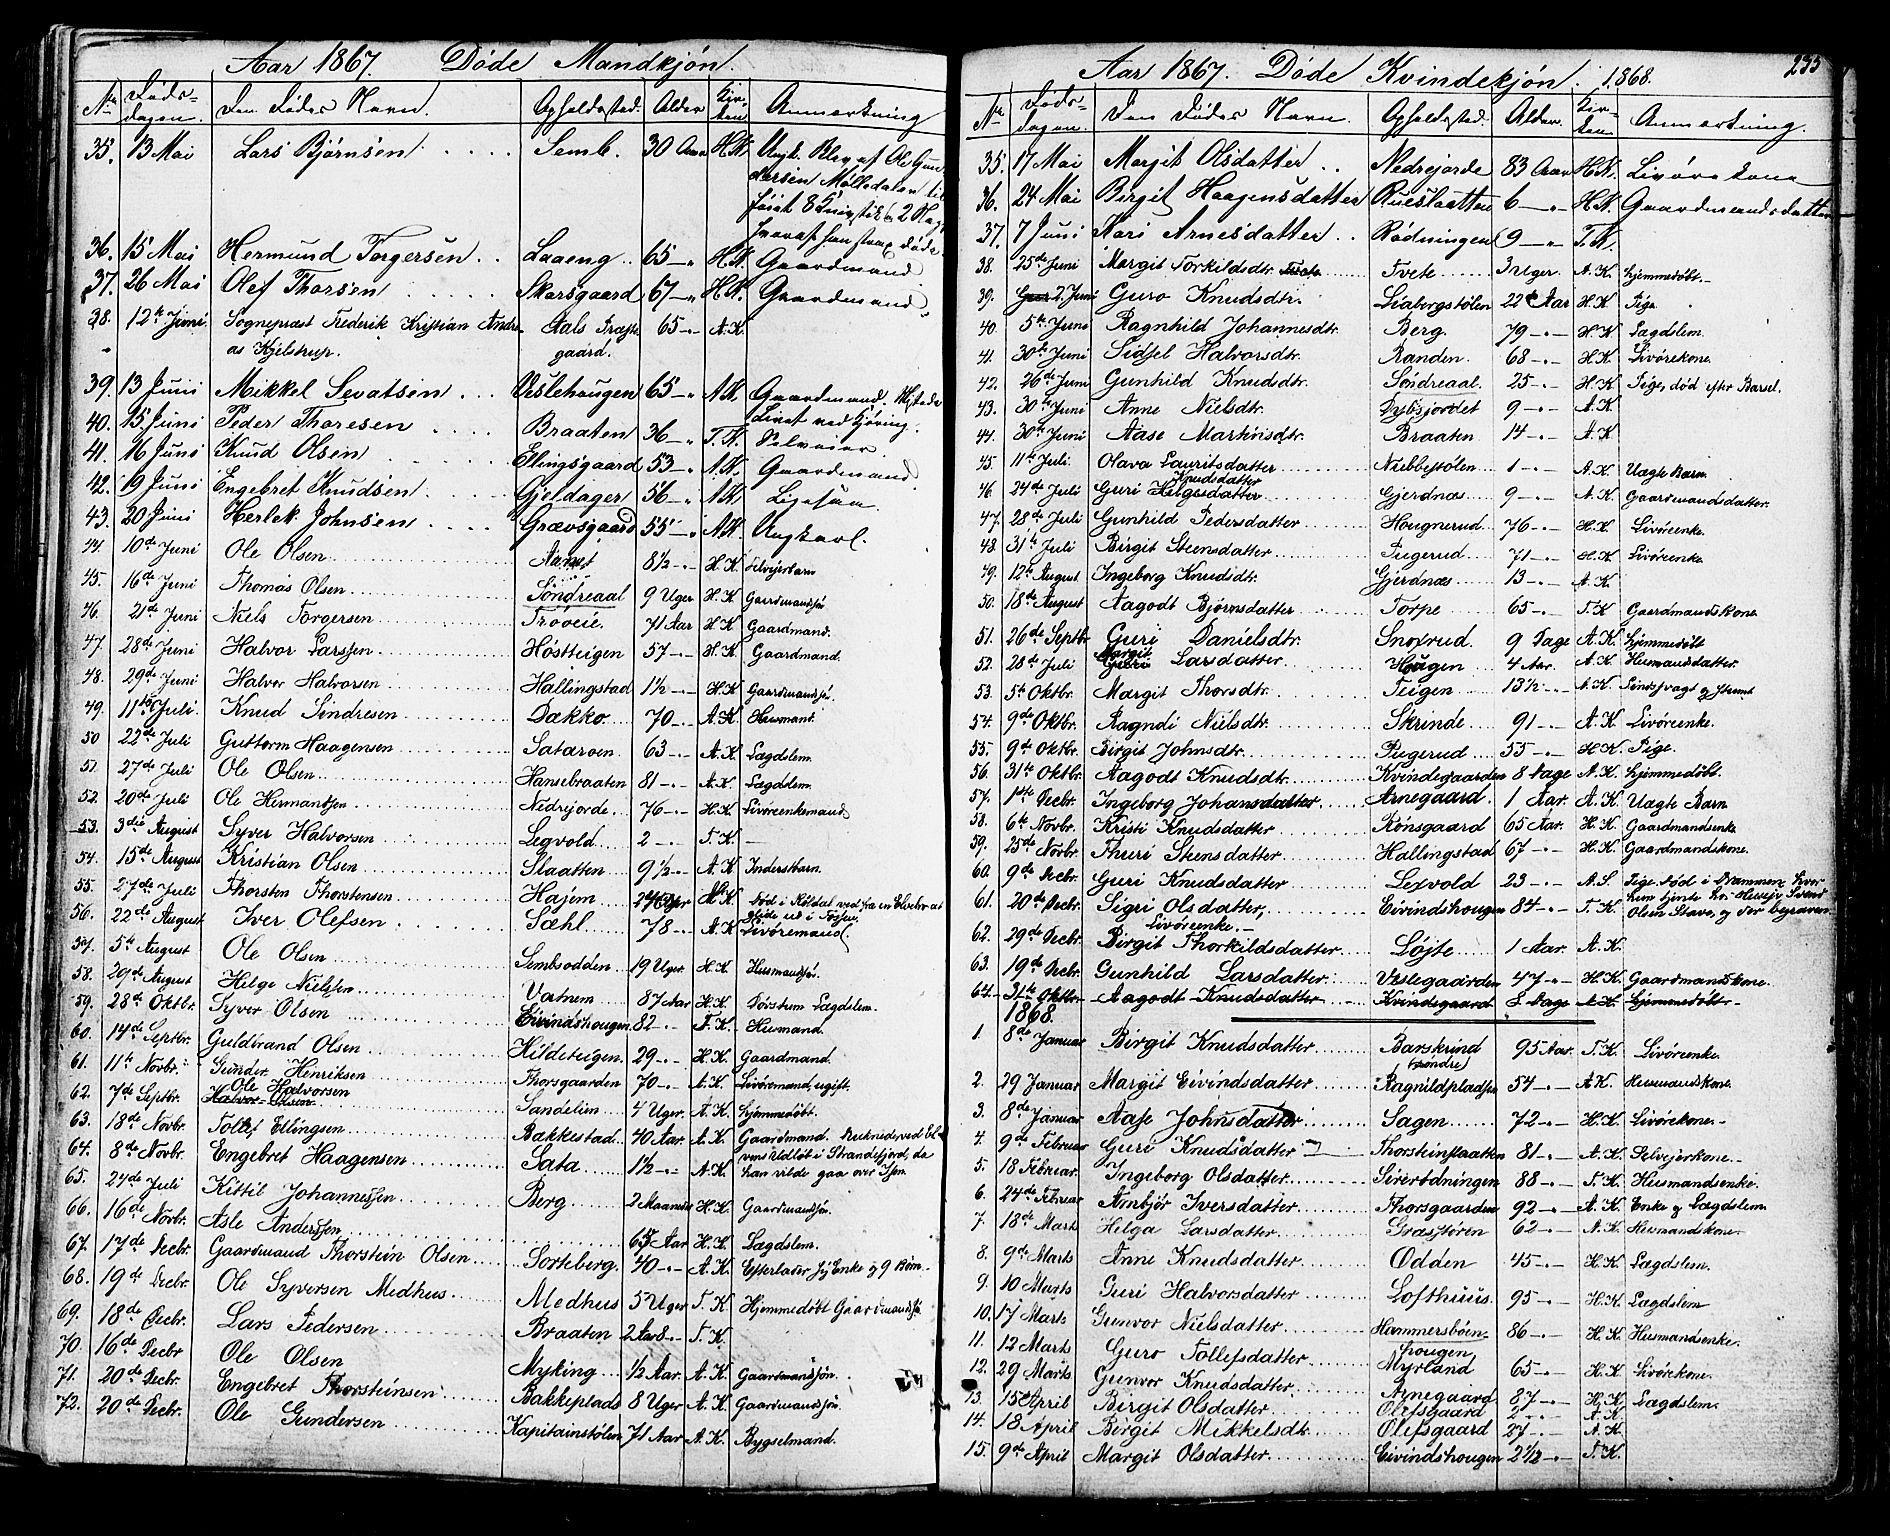 Aar 1867. Døde Mandkjøn.
No Døds-dagen. Den Dødes Navn. Opholdssted. Alder Kirken Anmærkning
35. 13 Mai Lars Bjørnsen Semb. 30 Aar H.K. Ungk. Blev af Ole Gun
dersen Mølledalen til
føiet 8 Knivstik i 2 Nat
hvoraf han strax døde.
36. 15 Mai Hermund Torgersen Laaeng 65 - " H.K. Gaardmand
37. 26 Mai Olef Thorsen Skarsgaard 67 - " H.K. Gaardmand
38. 12te Juni Sogneprest Frederik Kristian Andre- Aals Præste 65 - " A.K.
as Kjelstrup. gaard.
39. 13 Juni Mikkel Sevatsen Veslehaugen 65 - " A.K. Gaardmand. Mistede
Livet ved Kjøring.
40. 15 Juni Peder Thoresen Braaten 36 - " T.K. Selveier
41. 16 Juni Knud Olsen Ellingsgaard 53 - " A.K. Gaardmand.
42. 19 Juni Engebret Knudsen Gjeldager 56 - " A.K. Ligesaa.
43. 20 Juni Herlek Johnsen Grævsgaard 55 - " A.K. Ungkarl.
44. 10de Juni Ole Olsen 8½ - " H.K. Selvejerbarn
45. 16de Juni Thomas Olsen Søndreaal 9 Uger H.K. Gaardmandsøn
46. 21de Juni Niels Torgersen Trøveie. 71 Aar H.K. Gaardmand.
47. 28de Juni Halvor Larssen Høstteigen 57 - " H.K. Gaardmand.
48. 29de Juni Halvor Halvorsen Hallingstad 1½ - " H.K. Gaardmandsøn
49. 11te Juli. Knud Sindresen Dækko 70 - " A.K. Husmand.
50 22de Juli Guttorm Haagensen Sataroen 63 - " A.K. Lægdslem.
51. 27de Juli Ole Olsen Hansebraaten 81 - " A.K. Lægdslem.
52. 20de Juli Ole Hermandsen Nedrejorde. 76 - " H.K. Livørenkemand
53. 3die August Syver Halvorsen Legvold 2 - " T.K. -
54. 15de August Kristian Olsen Slaatten 9½ - " A.K. Inderstbarn.
55. 27de Juli Thorsten Thorstensen Hajem H.K. Død i Røldal ved fra en Elvebro at
glide ud i Fossen.
56. 22de August Iver Olefsen Sæhl 78 - " A.K. Livøremand.
57. 5te August Ole Olsen Sembsodden 19 Uger H.K. Husmandsøn.
58. 29de August Helge Nielsen Vatnem 87 Aar H.K. Døvstum Lægdslem.
59. 28de Oktbr. Syver Olsen Eivindshougen 82 - " T.K. Husmand.
60. 14de Septbr. Guldbrand Olsen Hildeteigen 29 - " H.K. Gaardmand.
61. 11te Novbr. Gunder Henriksen Thorsgaarden 70 - " A.K. Livørmand, ugift.
Ole Halvorsen
62. 7de Septbr. Halvor Olsen Sandelien 4 Uger. A.K. Hjemmedøbt.
63. 18de Novbr. Tollef Ellingsen Bakkestad 40 Aar. A.K. Gaardmand. Druknede ved El-
vens Udløb i Strandefjord, da
64. 8de Novbr. Engebret Haagensen Sata 1½ - " A.K. han vilde gaa over Isen.
65. 24de Juli Kittil Johannessen Berg 2 Maaned H.K. Gaardmandsøn.
66. 16de Novbr. Asle Anderssen 65 Aar H.K. Lægdslem.
67. 17de Decbr. Gaardmand Thorstein Olsen Sorteberg. 40 - " A.K. Efterlader sig Enke og 9 Børn.
68. 19de Decbr. Ole Syversen Medhus Medhus 5 Uger T.K. Hjemmedøbt Gaardmandssø.
69. 18de Decbr. Lars Pedersen Braaten 2 Aar T.K.
70. 16de Decbr Ole Olsen Myking ½ Aar. A.K. Gaardmandsøn.
71. 20de Decbr. Engebret Thorsteinsen Bakkeplads 8 Uger A.K. Gaardmandsøn.
72. 20de Decbr. Ole Gundersen Kapitainstølen 71 Aar A.K. Bygselmand.
Aar 1867. Døde Kvindekjøn. 1868. 233
No Døds-dagen. Den Dødes Navn. Opholdssted. Alder. Kirken Anmærkning.
35. 17 Mai Margit Olsdatter Nedrejorde 83 Aar H.K. Livørekone
36. 24 Mai Birgit Haagensdatter Rueslaatten 6 - " H.K. Gaardmandsdatter
37. 7 Juni Kari Arnesdatter Rødningen 9 - " T.K.
38. 25de Juni Margit Torkildsdtr. Tvete 3 Uger. A.K. Hjemmedøbt.
39. 2. Juni Guro Knudsdtr. Liabergstølen 22 Aar H.K. Pige.
40. 5te Juni Ragnhild Johannesdtr. Berg. 79 - " H.K. Lægdslem.
41. 30te Juni Sidsel Halvorsdtr. Randen. 68 - " H.K. Livørekone.
42. 26de Juni Gunhild Knudsdtr. Søndreaal. 25 - " H.K. Pige, død efter Barsel.
43. 30te Juni Anne Nielsdtr. Dybsjordet 9 - " A.K
44. 30te Juni Aase Martinsdtr. Braaten 14 - " A.K
45. 11te Juli. Olava Lauritsdatter Nubbestølen 1 - " A.K Uægte Barn
Knudsdatter
46. 24de Juli Guri Helgesdatter Gjerdnæs 9 - " A.K Gaardmandsdatter.
47. 28de Juli Gunhild Pedersdatter Hougnerud 76 - " H.K. Livørenke.
48. 31te Juli Birgit Steensdatter Pugerud 71 - " H.K. Livørenke.
49. 12te August Ingeborg Knudsdtr. Gjerdnæs 13 - " A.K.
50. 18de August Aagodt Bjørnsdatter Torpe 65 - " T.K Gaardmandskone.
51. 26de Septbr Guri Danielsdtr. Snoxrud. 9 Dage A.K. Hjemmedøbt
Margit
52. 28de Juli Guri Larsdatter Hougen 4 Aar. A.K. Husmandsdatter.
53. 5te Oktbr. Margit Thorsdtr. Teigen 13½ - " A.K. Sindssvagt og stumt
54. 9de Oktbr. Ragndi Nielsdtr. Skrinde 91 - " A.K Livørenke.
55. 9de Oktbr. Birgit Johnsdtr. Pugerud 55 - " H.K. Pige.
56. 31te Oktbr. Aagodt Knudsdtr. Kvindegaarden 8 Dage A.K. Hjemmedøbt.
57. 1ste Decbr. Ingeborg Johansdatter Arnegaard. 1 Aar. A.K. Uægte Barn
58. 6te Novbr. Kristi Knudsdatter Rønsgaard 65 Aar. H.K. Gaardmandsenke
59. 25de Novbr. Thuri Steensdatter Hallingstad 67 - " H.K. Gaardmandskone.
60. 9de Decbr. Guri Knudsdatter Lexvold 23 - " A.S. Pige død i Drammen, hvor
61. 20de Decbr. Sigri Olsdatter, Eivindshougen 84 - " T.K hun tjente hos Svend
Livørenke. - Olsen Stave, og der begraven.
62. 29de Decbr. Birgit Thorkildsdatter Løjte 1 Aar. A.K.
63. 19de Decbr. Gunhild Larsdatter Veslegaarden 47 - " H.K Gaardmandskone.
64. 31te Oktbr. Aagodt Knudsdatter Kvindegaard 8 Dage A.K. Hjemmedøbt
1868.
1. 8de Januar Birgit Knudsdatter Barskrind 95 Aar. T.K. Livørenke.
(søndre)
2. 29 Januar Margit Eivindsdatter Ragnildpladsen 54 - " A.K. Husmandskone.
3. 8de Januar Aase Johnsdatter Sagen 72 - " H.K. Livørekone.
4. 9de Februar Guri Knudsdatter Thorsteinslaatten 81 - " A.K. Selvejerkone.
5. 18 Februar. Ingeborg Olsdatter Sirerødningen 88 - " T.K. Husmandsenke.
6. 24de Februar Arnbjør Iversdatter Thorsgaarden 92 - " A.K. Enke og Lægdslem.
7. 18de Marts Helga Larsdatter 62 - " A.K. Husmandskone.
8. 9de Marts Anne Knudsdatter Odden 45 - " H.K. Lægdslem.
9. 10 Marts Guri Halvorsdatter Lofthuus. 95 - " H.K. Lægdslem
10. 17 Marts Gunvor Nielsdatter Hammersbøen- 86 - " H.K. Husmandsenke.
hougen
11. 12 Marts Guro Tollefsdatter Myrland 65 - " H.K. Livørekone.
12. 29 Marts Gunvor Knudsdatter Arnegaard 87 - " H.K. Lægdslem.
13. 15 April Birgit Olsdatter Olefsgaard 2 - " A.K.
14. 18 April Birgit Mikkelsdtr. Olefsgaard 27 - " A.K.
15. 9de April Margit Olsdatter Eivindshougen 2½ - " T.K.